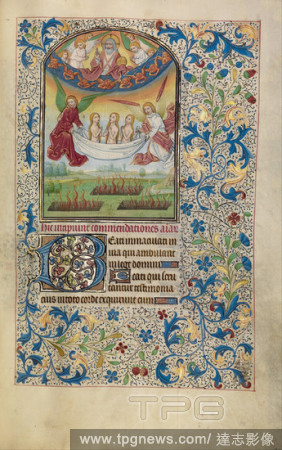 Hic incipiunt commendationes aīaꝝ
Beati inmaculati in
via qui ambulant
in lege domini
Beati qui scru
tantur testimonia
eius in toto corde exquirunt eum
TPG
www.tpgnews.com/達志影像